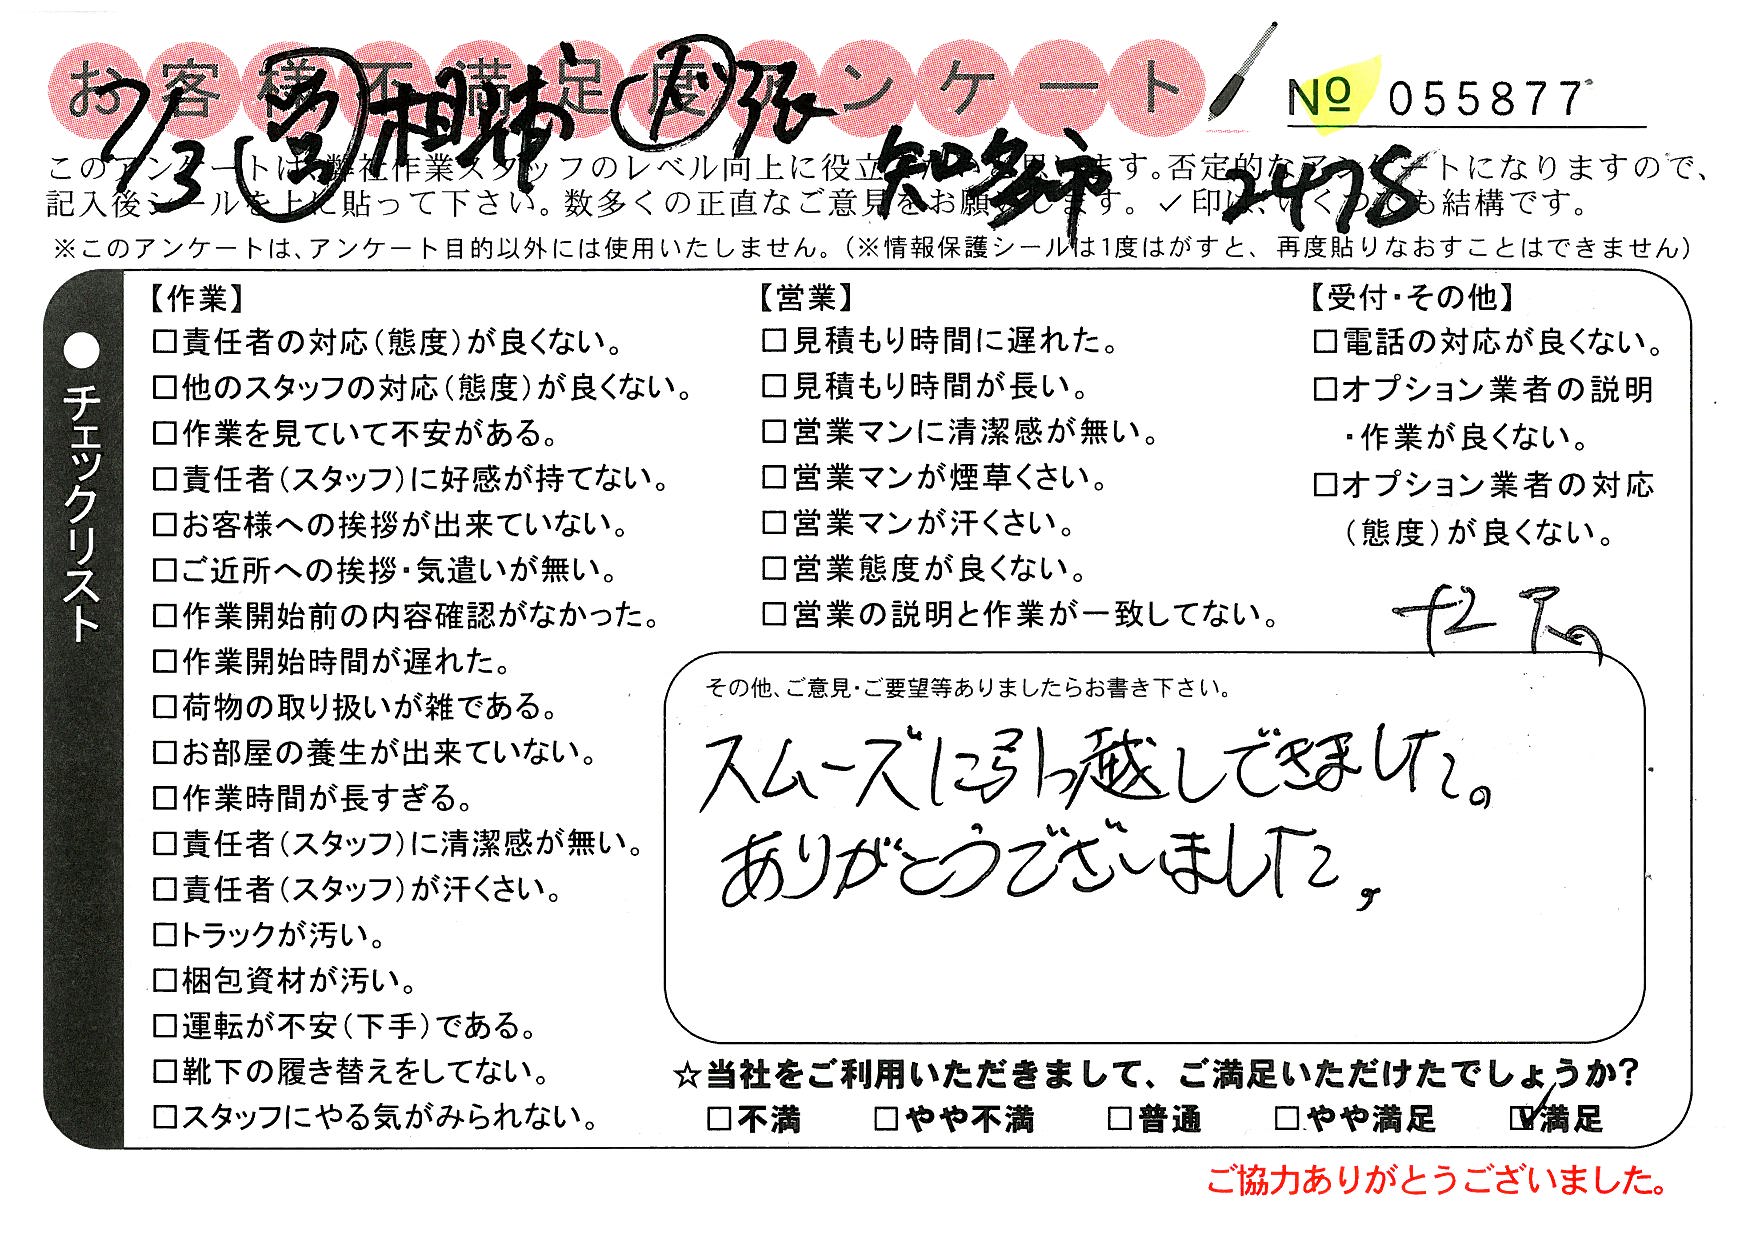 お客様不満足度アンケート
№ 055877
7/3 営 相姉 ド 張
知多市 2478
このアンケートは、弊社作業スタッフのレベル向上に役立てたいと思います。否定的なアンケートになりますので、
記入後シールを上に貼って下さい。数多くの正直なご意見をお願いします。✓印は、いくつでも結構です。
※このアンケートは、アンケート目的以外には使用いたしません。(※情報保護シールは1度はがすと、再度貼りなおすことはできません)
●チェックリスト
【作業】
□責任者の対応(態度)が良くない。
□他のスタッフの対応(態度)が良くない。
□作業を見ていて不安がある。
□責任者(スタッフ)に好感が持てない。
□お客様への挨拶が出来ていない。
□ご近所への挨拶・気遣いが無い。
□作業開始前の内容確認がなかった。
□作業開始時間が遅れた。
□荷物の取り扱いが雑である。
□お部屋の養生が出来ていない。
□作業時間が長すぎる。
□責任者(スタッフ)に清潔感が無い。
□責任者(スタッフ)が汗くさい。
□トラックが汚い。
□梱包資材が汚い。
□運転が不安(下手)である。
□靴下の履き替えをしてない。
□スタッフにやる気がみられない。
【営業】
□見積もり時間に遅れた。
□見積もり時間が長い。
□営業マンに清潔感が無い。
□営業マンが煙草くさい。
□営業マンが汗くさい。
□営業態度が良くない。
□営業の説明と作業が一致してない。
【受付・その他】
□電話の対応が良くない。
□オプション業者の説明
・作業が良くない。
□オプション業者の対応
(態度)が良くない。
その他、ご意見・ご要望等ありましたらお書き下さい。
スムーズに引っ越しできました。
ありがとうございました。
☆当社をご利用いただきまして、ご満足いただけたでしょうか?
□不満 □やや不満 □普通 □やや満足 ☑満足
ご協力ありがとうございました。